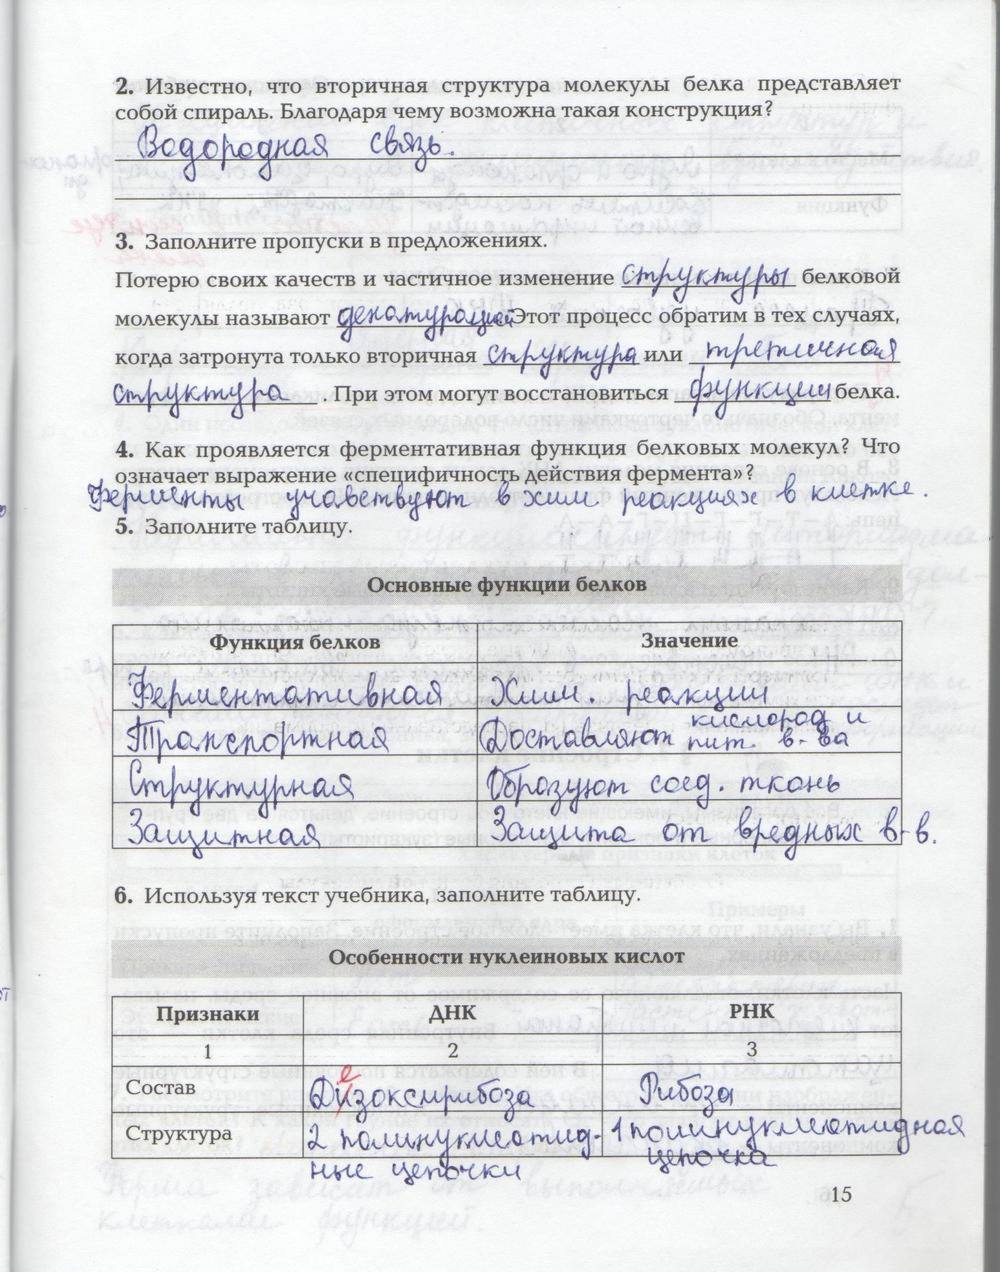 2. Известно, что вторичная структура молекулы белка представляет
собой спираль. Благодаря чему возможна такая конструкция?
Водородная связь.
3. Заполните пропуски в предложениях.
Потерю своих качеств и частичное изменение структуры белковой
молекулы называют денатурацией Этот процесс обратим в тех случаях,
когда затронута только вторичная структура или третичная
структура. При этом могут восстановиться функции белка.
4. Как проявляется ферментативная функция белковых молекул? Что
означает выражение «специфичность действия фермента»?
Ферменты учавствуют в хим. реакциях в клетке.
5. Заполните таблицу.
Основные функции белков
Функция белков Значение
Ферментативная Хим. реакции
Транспортная Доставляют кислород и
пит. в-ва
Структурная Образуют соед. ткань
Защитная Защита от вредных в-в.
6. Используя текст учебника, заполните таблицу.
Особенности нуклеиновых кислот
Признаки ДНК РНК
1 2 3
Состав Дезоксирибоза Рибоза
Структура 2 полинуклеотид- 1 полинуклеотидная
ные цепочки цепочка
15